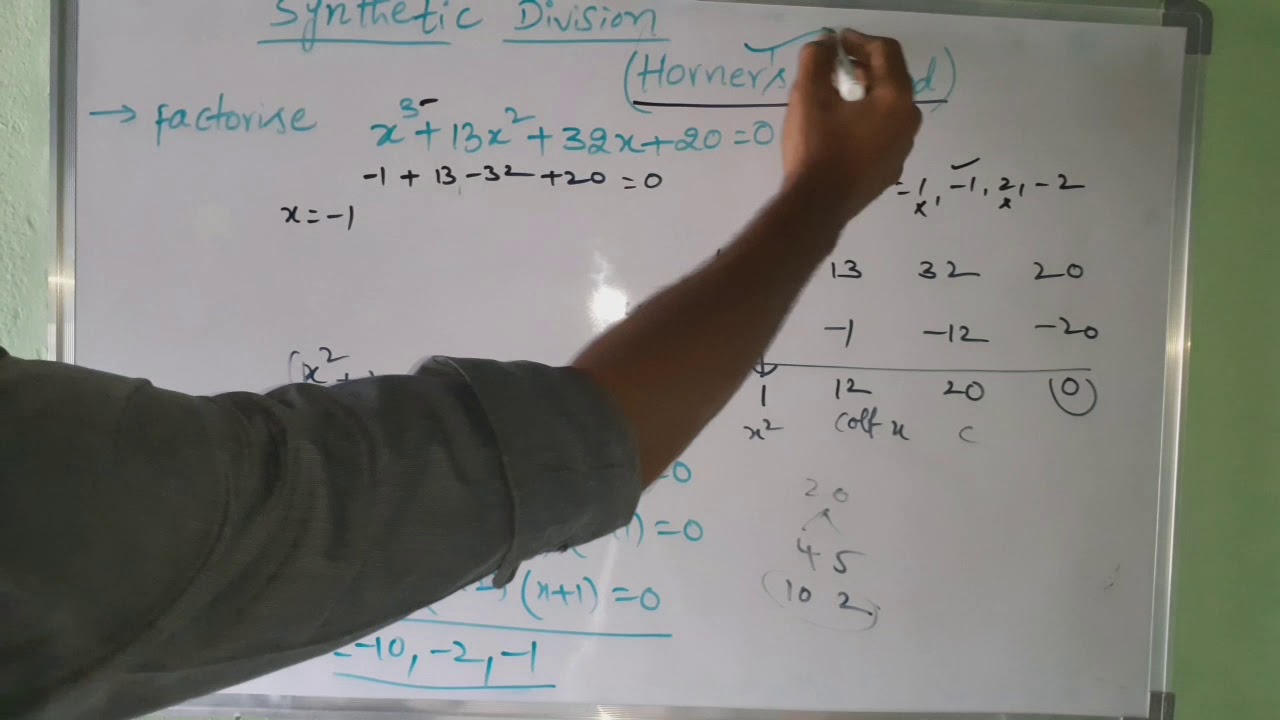 Synthetic Division
(Horner's d)
→ factorise x³ + 13x² + 32x + 20 = 0
-1 + 13 - 32 + 20 = 0
= 1, -1, 2, -2
x = -1
13 32 20
-1 -12 -20
1 12 20 0
x² coff x c
(x² +
= 0
1) = 0
(x+1) = 0
= -10, -2, -1
20
4 5
10 2